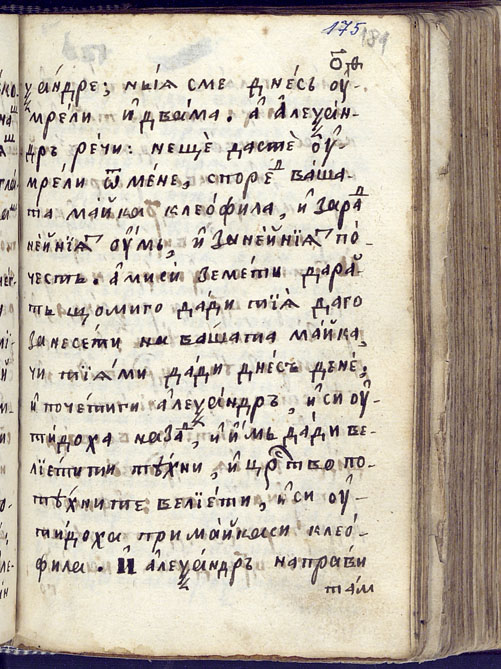 175 189
ѻ҃в
ѯа́ндре; ны́ѧ сме дне́сь оу҆-
мрели и҆ два́ма. А҆ А҆леѯа́н-
дръ ре́чи: нещѐ дастѐ оу҆-
мре́ли ѿ ме́не, споре́д ва́ша-
та ма́йка клео́фила, и҆ зара́д
не́йнїѧт оу҆мь, и҆ за не́йнїѧт по́-
честь. А҆ ми си земе́ти дара́т
ть що ми го да́ди тїѧ̀ да го
занесе́ти на ва́шата ма́йка,
чи тїѧ́ ми да́ди дне́съ де́не;
и҆ поче́ти ги а҆леѯа́ндръ, и҆ си оу҆-
ти́доха наза́д, и҆ и҆́мь да́ди ве-
лїе́тити тѣ́хни, и҆ ца́рство по-
тѣ́хните велїе́ти, и҆ си оу҆-
ти́доха при ма́йка си клео́-
фила. И҆ а҆леѯа́ндръ напра́ви
та́м